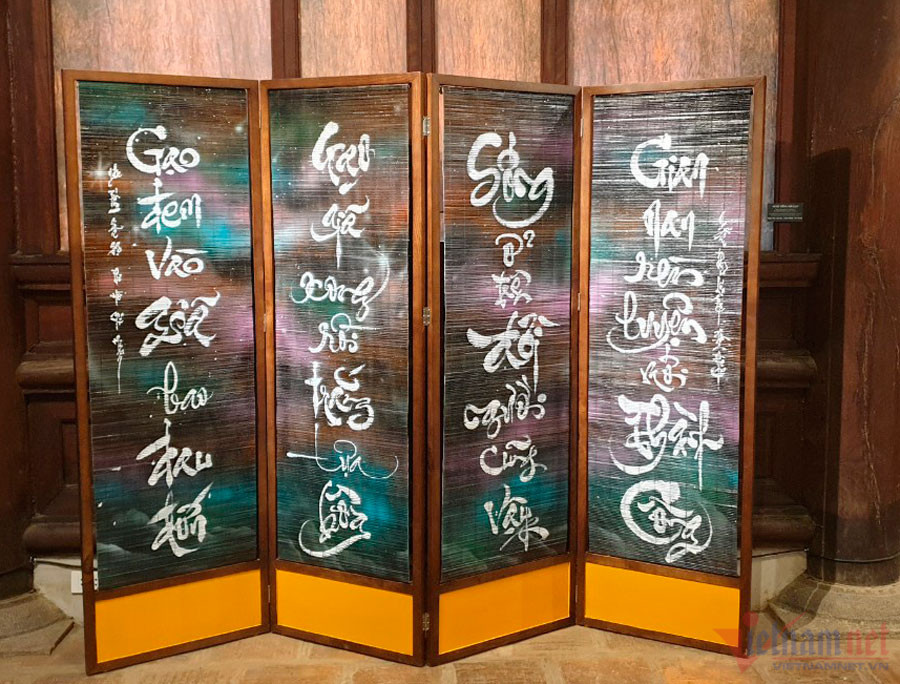 Gạo đem vào giã bao đau đớn
Gạo giã xong rồi trắng tựa bông
Sống ở trên đời người cũng vậy
Gian nan rèn luyện mới thành công
Vietnamnet
VIETNAMNET.VN